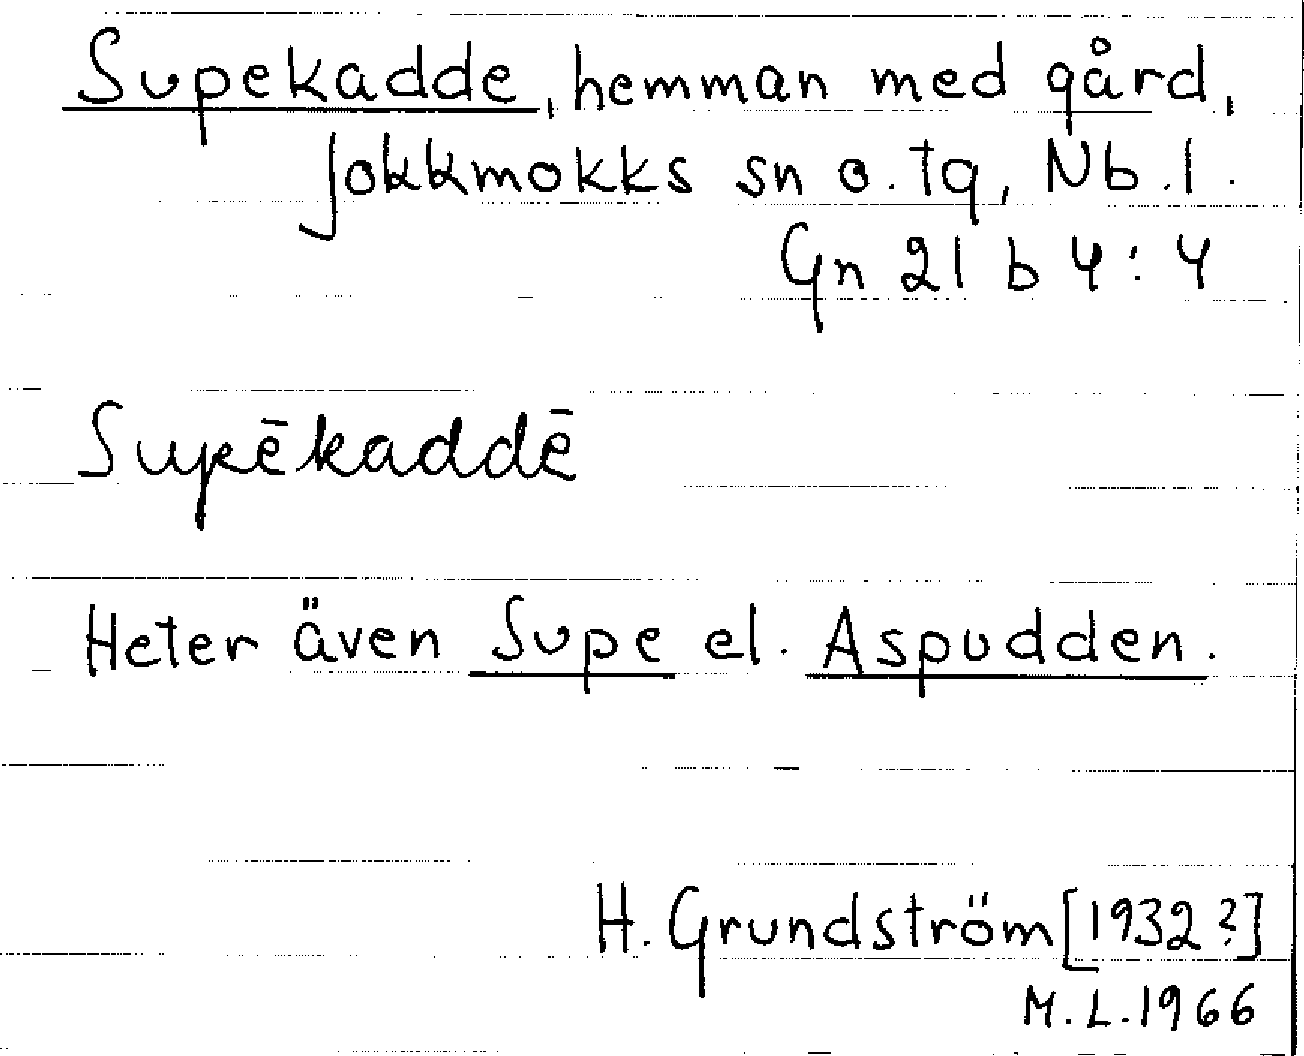 Supekadde, hemman med gård,
Jokkmokks sn o. tg, Nb. l.
Gn 21 b 4:4
Supēkaddē
Heter även Supe el. Aspudden.
H. Grundström [1932?]
M.L. 1966